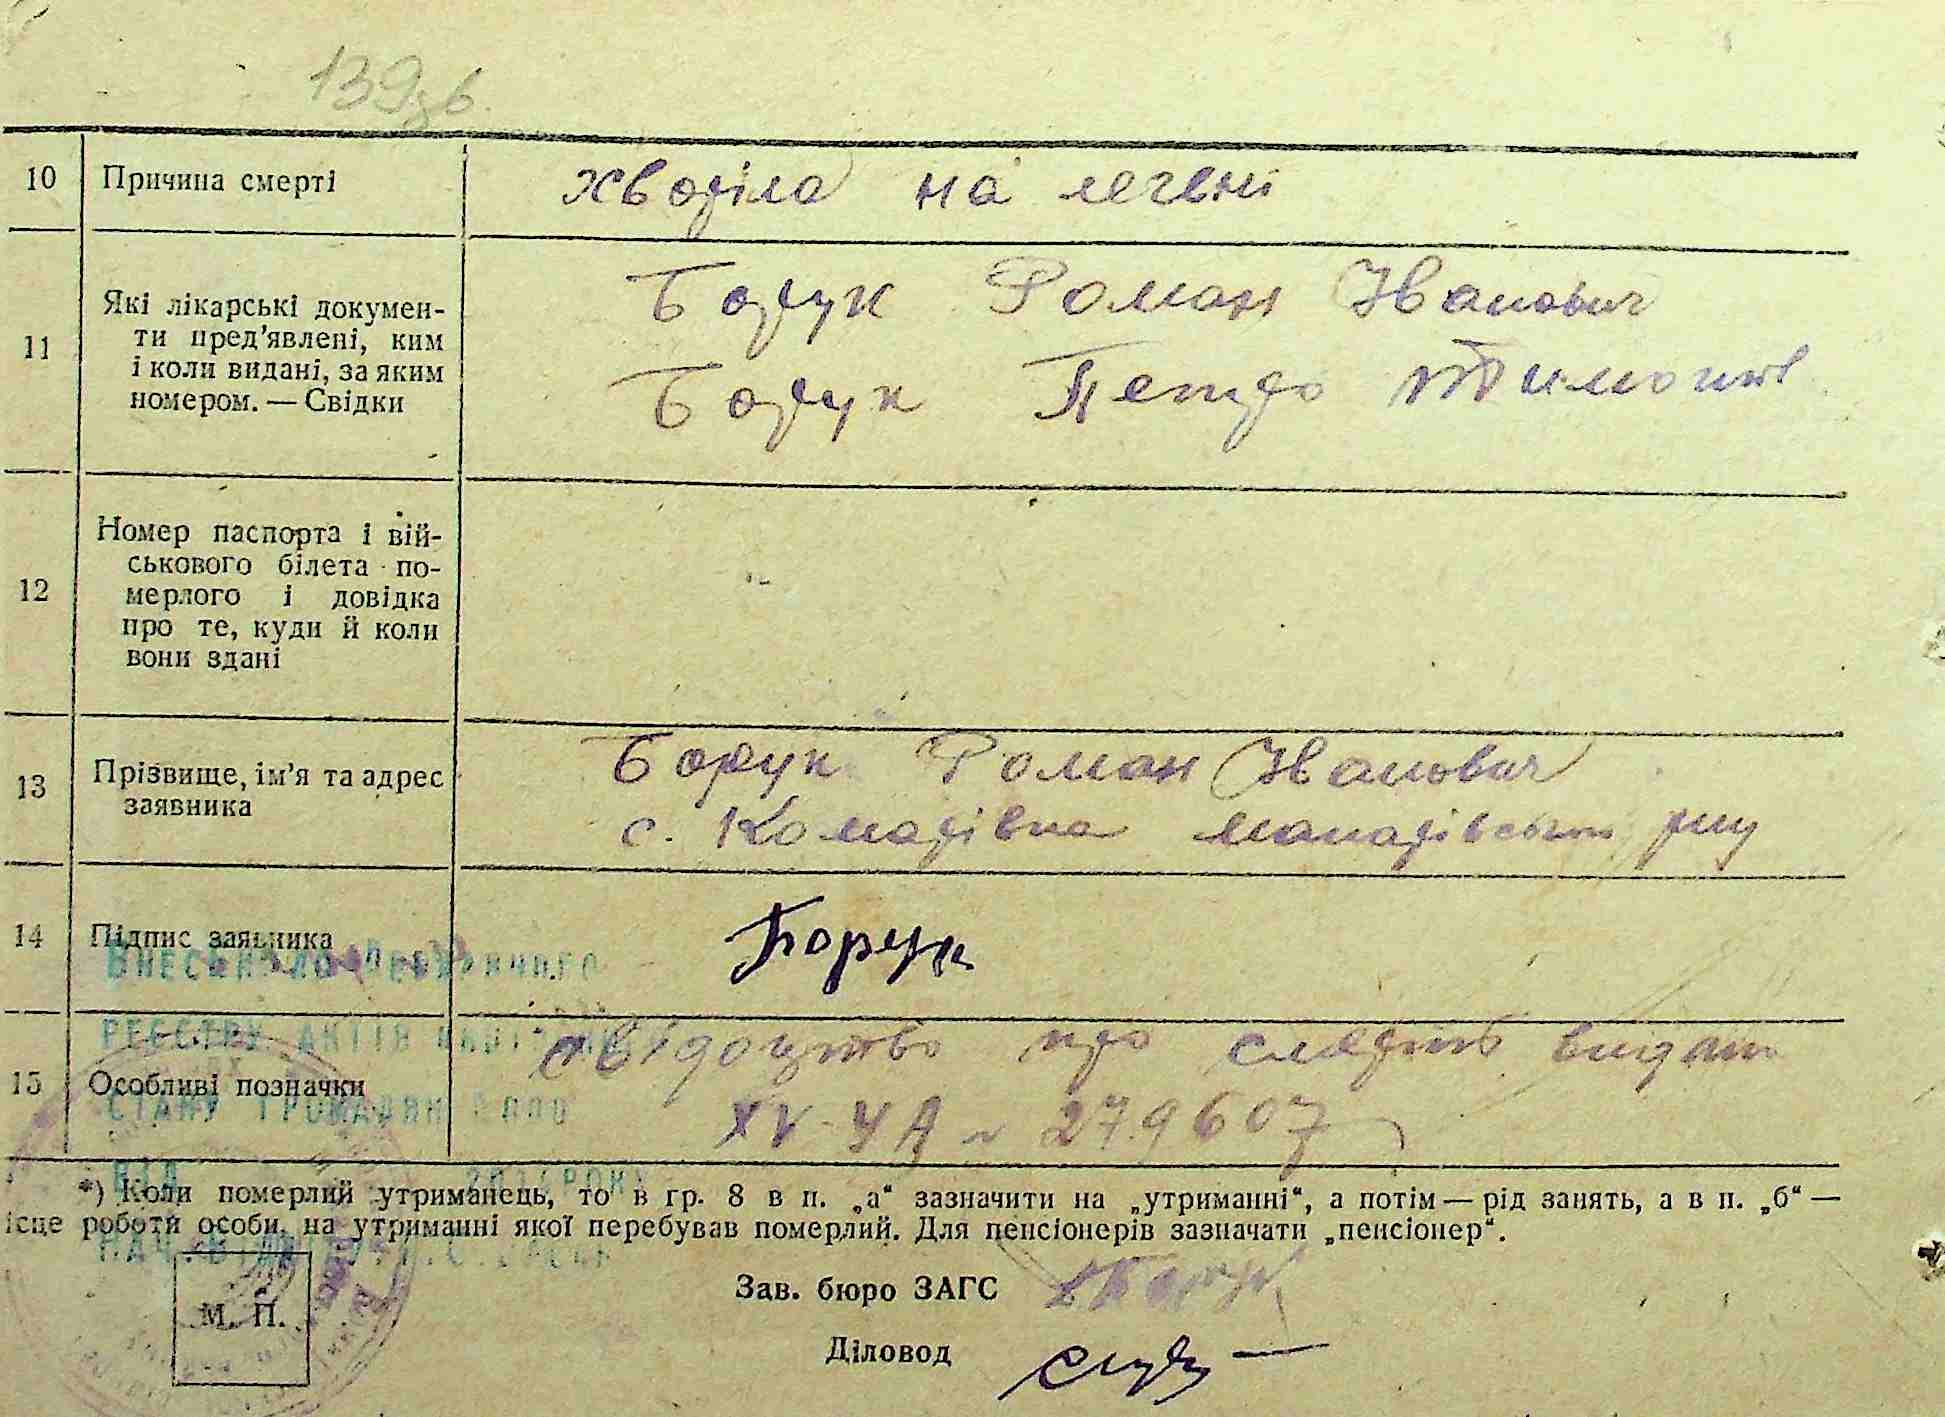 139зв.
10 Причина смерті хворіла на легені
11 Які лікарські докумен-
ти пред'явлені, ким
і коли видані, за яким
номером. — Свідки
Борук Роман Іванович
Борук Петро
12 Номер паспорта і вій-
ськового білета по-
мерлого і довідка
про те, куди й коли
вони здані
13 Прізвище, ім'я та адрес
заявника
Борук Роман Іванович
с. Комарівка р-ну
14 Підпис заявника Борук
ВНЕСЕНО ДО ДЕРЖАВНОГО
РЕЄСТРУ АКТІВ
15 Особливі позначки
свідоцтво про смерть видано
СТАНУ ГРОМАДЯН
XV-УА № 279607
ВІД РОКУ
*) Коли померлий утриманець, то в гр. 8 в п. „а“ зазначити на „утриманні“, а потім — рід занять, а в п. „б“ —
ісце роботи особи, на утриманні якої перебував померлий. Для пенсіонерів зазначати „пенсіонер“.
М. П.
Зав. бюро ЗАГС
Діловод